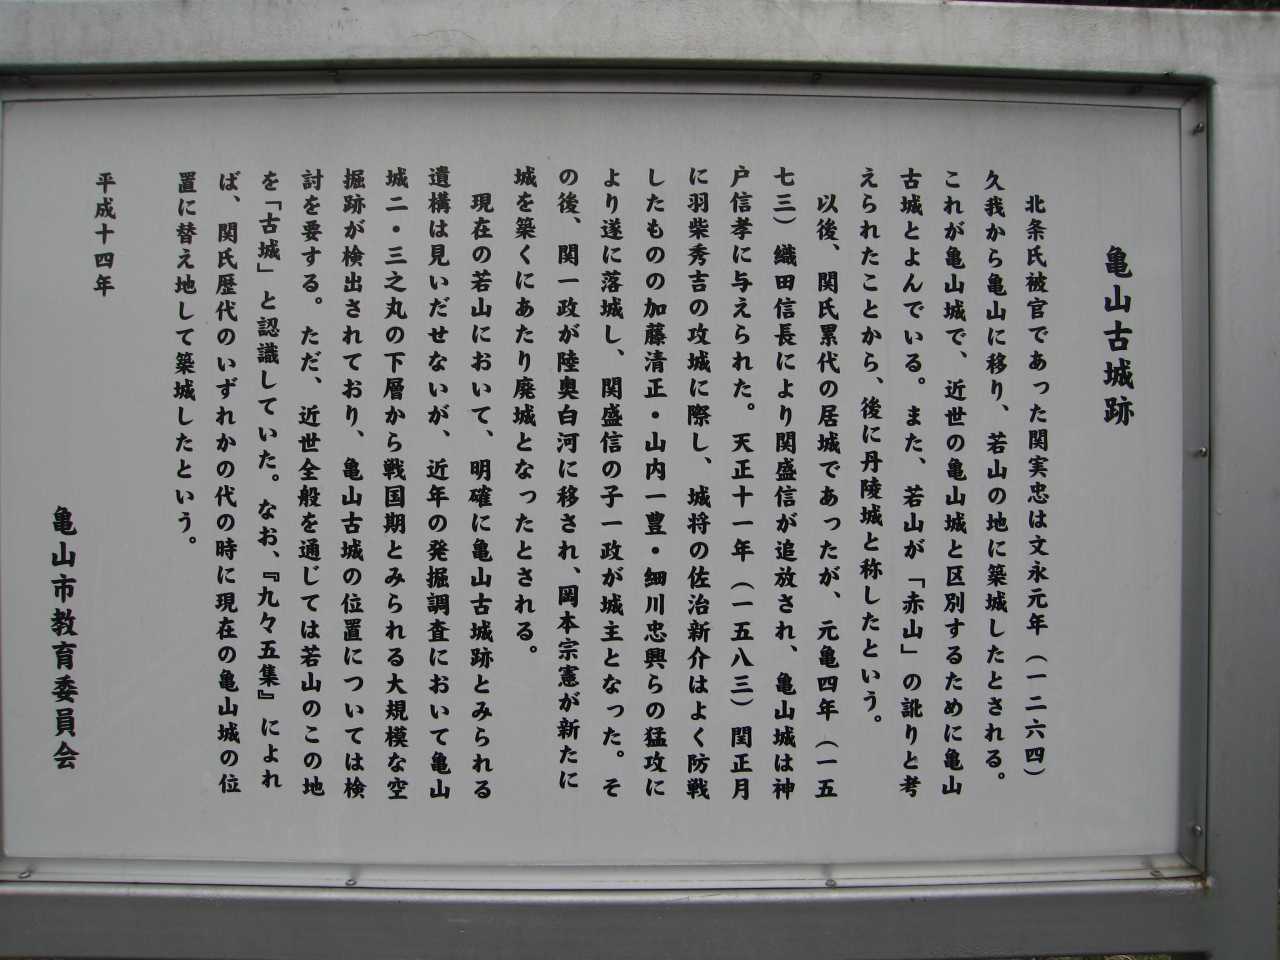 亀山古城跡
北条氏被官であった関実忠は文永元年（一二六四）
久我から亀山に移り、若山の地に築城したとされる。
これが亀山城で、近世の亀山城と区別するために亀山
古城とよんでいる。また、若山が「赤山」の訛りと考
えられたことから、後に丹陵城と称したという。
以後、関氏累代の居城であったが、元亀四年（一五
七三）織田信長により関盛信が追放され、亀山城は神
戸信孝に与えられた。天正十一年（一五八三）閏正月
に羽柴秀吉の攻城に際し、城将の佐治新介はよく防戦
したものの加藤清正・山内一豊・細川忠興らの猛攻に
より遂に落城し、関盛信の子一政が城主となった。そ
の後、関一政が陸奥白河に移され、岡本宗憲が新たに
城を築くにあたり廃城となったとされる。
現在の若山において、明確に亀山古城跡とみられる
遺構は見いだせないが、近年の発掘調査において亀山
城二・三之丸の下層から戦国期とみられる大規模な空
掘跡が検出されており、亀山古城の位置については検
討を要する。ただ、近世全般を通じては若山のこの地
を「古城」と認識していた。なお、『九々五集』によれ
ば、関氏歴代のいずれかの代の時に現在の亀山城の位
置に替え地して築城したという。
平成十四年
亀山市教育委員会